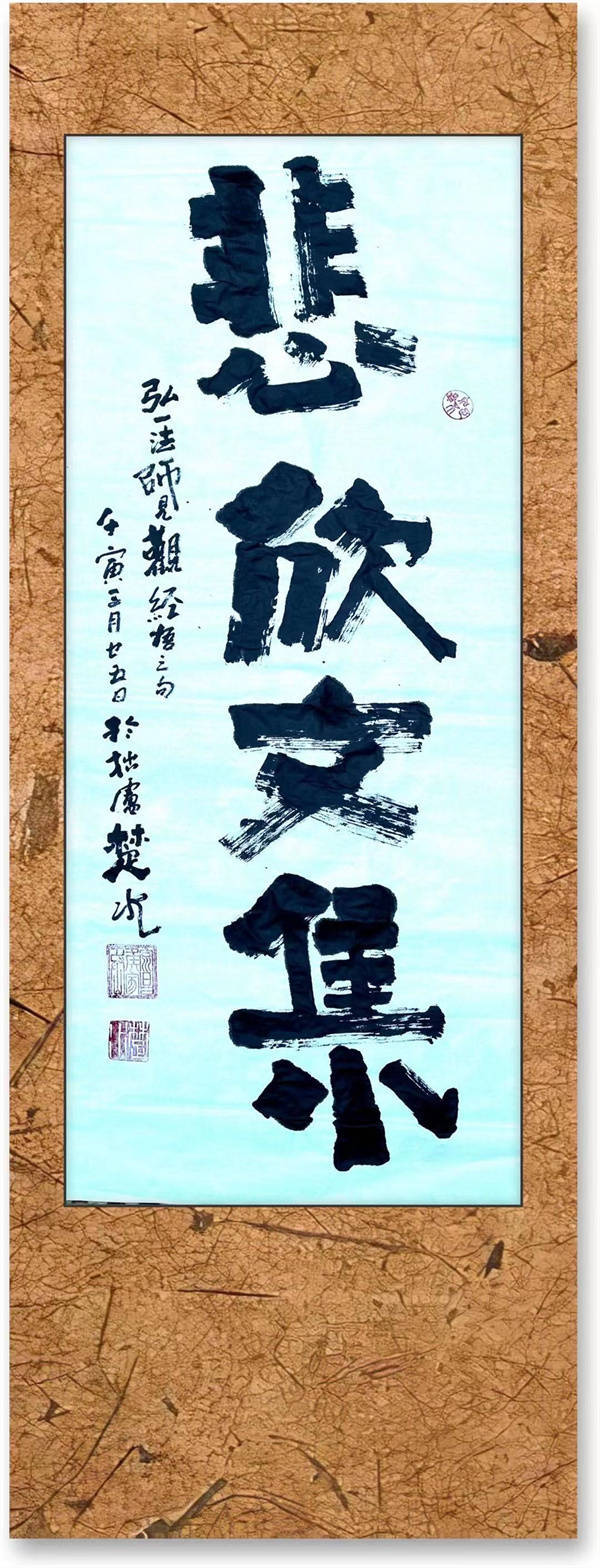 悲欣交集
弘一法師見觀經悟之句
壬寅三月廿五日於拙廬楚